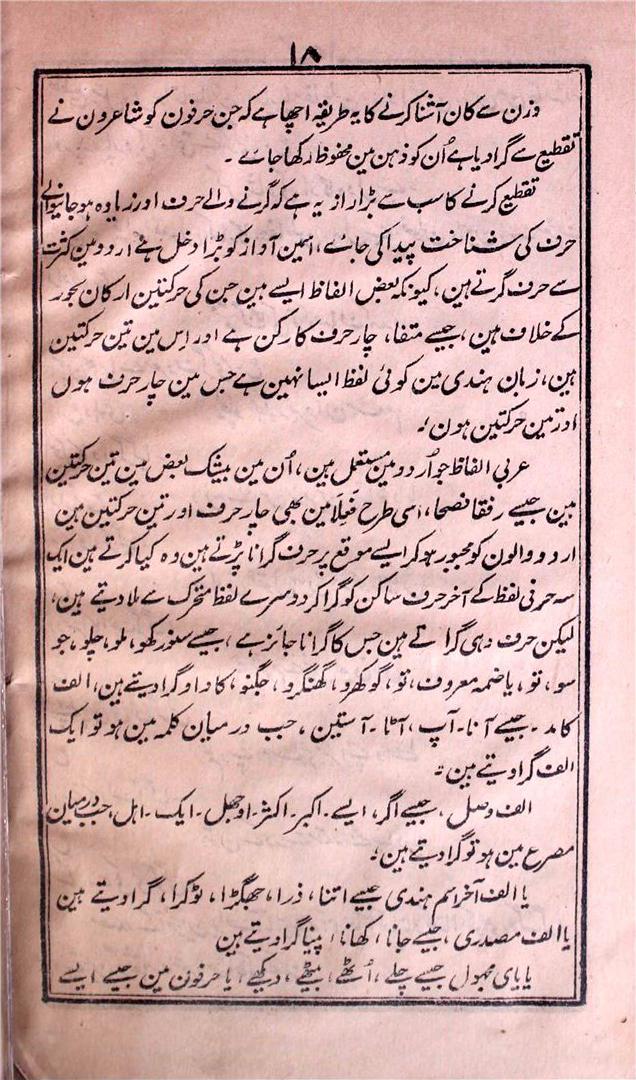 ۱۸
وزن سے کان آشنا کرنے کا یہ طریقہ اچھا ہے کہ جن حرفون کو شاعرون نے
تقطیع سے گرا دیا ہے اُن کو ذہن مین محفوظ رکھا جاے ۔
تقطیع کرنے کا سب سے بڑا راز یہ ہے کہ گرنے والے حرف اور زیادہ ہو جانیوالے
حرف کی شناخت پیدا کی جاے، اسمین آواز کو بڑا دخل ہے اردو مین کثرت
سے حرف گرتے ہین، کیونکہ بعض الفاظ ایسے ہین جن کی حرکتین ارکان بحور
کے خلاف ہین، جیسے متفا، چار حرف کا رکن ہے اور اس مین تین حرکتین
ہین، زبان ہندی مین کوئی لفظ ایسا نہین ہے جس مین چار حرف ہوں
اور تین حرکتین ہون ؛
عربی الفاظ جو اُردو مین مستعمل ہین، اُن مین بیشک بعض مین تین حرکتین
ہین جیسے رفقا فصحا، اسی طرح فَعِلَا مین بھی چار حرف اور تین حرکتین ہین
اردو والون کو مجبور ہو کر ایسے موقع پر حرف گرانا پڑتے ہین وہ کیا کرتے ہین ایک
سہ حرفی لفظ کے آخر حرف ساکن کو گرا کر دوسرے لفظ متحرک سے ملا دیتے ہین،
لیکن حرف وہی گراتے ہین جس کا گرانا جائز ہے، جیسے سنو رکھو، ملو، چلو، جو
سو، تو، یا ضمہ معروف، تو، گوکھرو، گھنگرو، جگنو، کا واو گرا دیتے ہین، الف
کا مد ۔ جیسے آنا ۔ آپ، آٹا ۔ آستین، جب درمیان کلمہ مین ہو تو ایک
الف گرا دیتے ہین ۔
الف وصل، جیسے اگر، ایسے ۔ اکبر ۔ اکثر ۔ اوجھل ۔ ایک ۔ اہل، جب درمیان
مصرع مین ہو تو گرا دیتے ہین ؛
یا الف آخر اسم ہندی جیسے اتنا، ذرا، جھگڑا، ٹوکرا، گرا دیتے ہین
یا الف مصدری، جیسے جانا، کھانا، پینا گرا دیتے ہین
یا یای مجہول جیسے چلے، اُٹھے، بیٹھے، دیکھے، یا حرفون مین جیسے ایسے